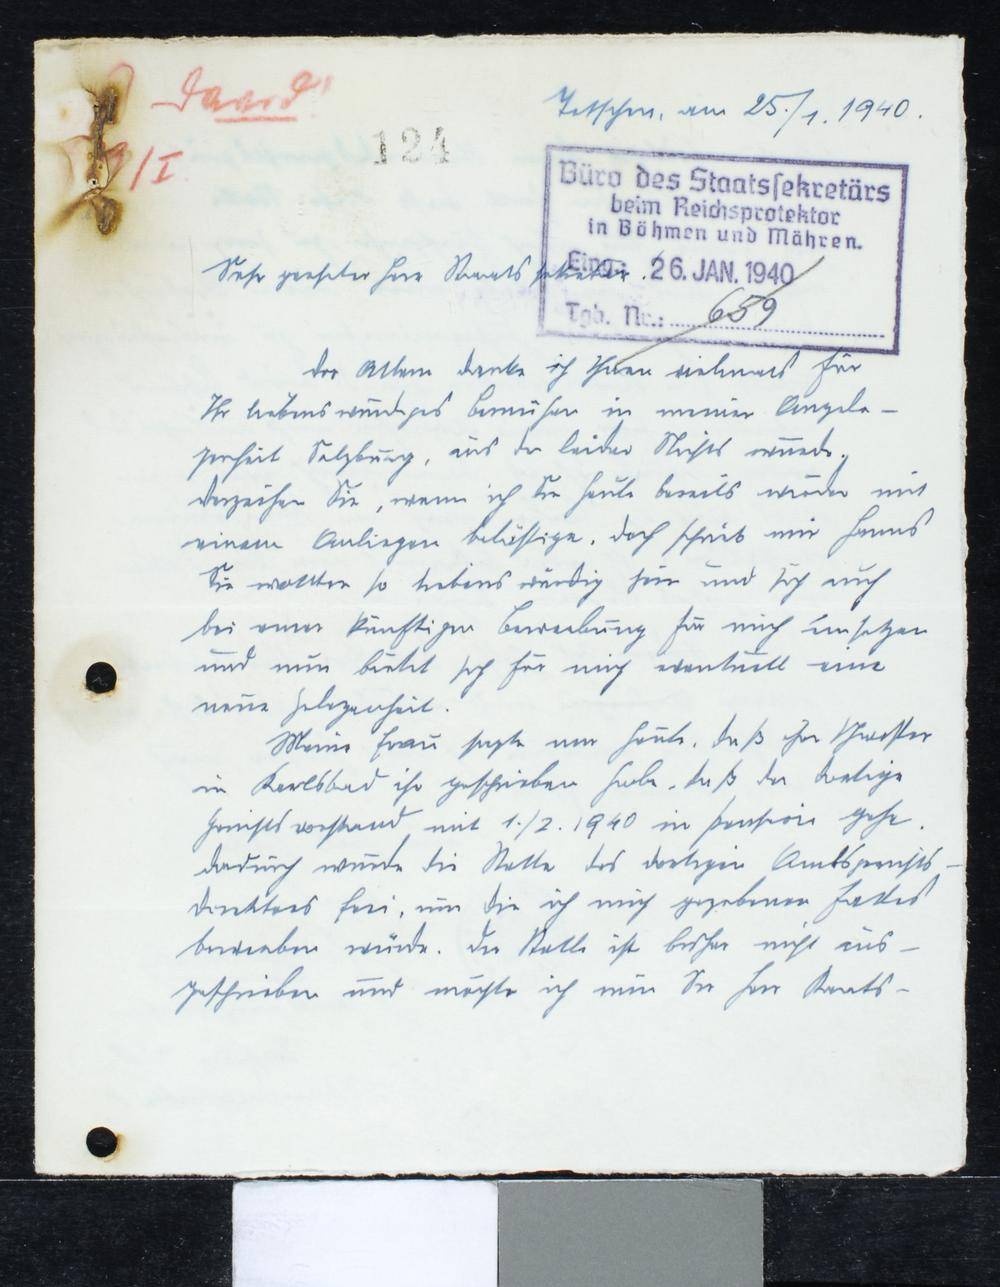 Tetschen, am 25./1. 1940.
124
/I
Büro des Staatssekretärs
beim Reichsprotektor
in Böhmen und Mähren.
Eing.: 26. JAN. 1940
Tgb. Nr.: 659
Sehr geehrter Herr Staatssekretär!
Vor Allem danke ich Ihnen vielmals für
Ihr liebenswürdiges Bemühen in meiner Angele-
genheit Salzburg, aus der leider Nichts wurde.
Verzeihen Sie, wenn ich Sie heute bereits wieder mit
einem Anliegen belästige, doch schrieb mir Hanns
Sie wollten so liebenswürdig sein und sich auch
bei einer künftigen Bewerbung für mich einsetzen
und nun bietet sich für mich eventuell eine
neue Gelegenheit.
Meine Frau sagte mir heute, daß ihre Schwester
in Karlsbad ihr geschrieben habe, daß der dortige
Gerichtsvorstand mit 1./2. 1940 in Pension gehe.
Dadurch würde die Stelle des dortigen Amtsgerichts-
direktors frei, um die ich mich gegebenen Falles
bewerben würde. Die Stelle ist bisher nicht aus-
geschrieben und möchte ich nun Sie Herr Staats-